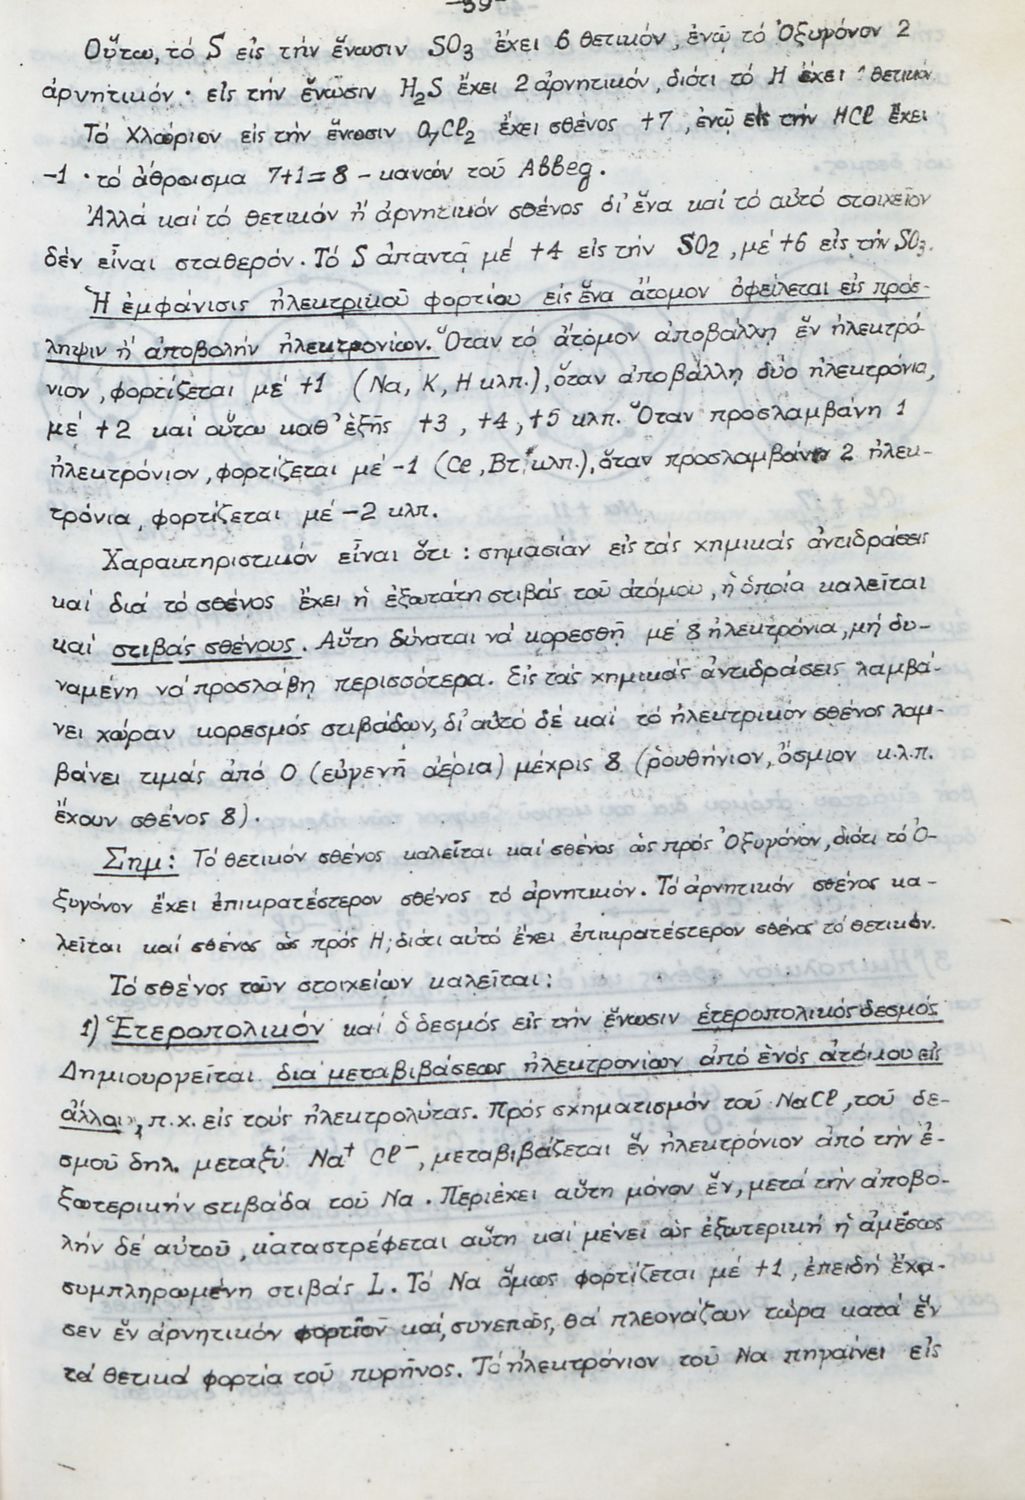 -39-
Οὕτω, τό S εἰς τήν ἕνωσιν SO3 ἔχει 6 θετικόν, ἐνῷ τό Ὀξυγόνον 2
ἀρνητικόν · εἰς τήν ἕνωσιν H2S ἔχει 2 ἀρνητικόν, διότι τό H ἔχει 1 θετικόν
Τό Χλώριον εἰς τήν ἕνωσιν O7Cl2 ἔχει σθένος +7, ἐνῷ εἰς τήν HCl ἔχει
-1 · τό ἄθροισμα 7+1=8 - κανών τοῦ Abbeg.
Ἀλλά καί τό θετικόν ἤ ἀρνητικόν σθένος δι' ἕνα καί τό αὐτό στοιχεῖον
δέν εἶναι σταθερόν. Τό S ἀπαντᾷ μέ +4 εἰς τήν SO2, μέ +6 εἰς τήν SO3.
Ἡ ἐμφάνισις ἠλεκτρικοῦ φορτίου εἰς ἕνα ἄτομον ὀφείλεται εἰς πρόσ-
ληψιν ἤ ἀποβολήν ἠλεκτρονίων. Ὅταν τό ἄτομον ἀποβάλλῃ ἕν ἠλεκτρό-
νιον, φορτίζεται μέ +1 (Na, K, H κλπ.), ὅταν ἀποβάλλῃ δύο ἠλεκτρόνια,
μέ +2 καί οὕτω καθ' ἑξῆς +3, +4, +5 κλπ. Ὅταν προσλαμβάνῃ 1
ἠλεκτρόνιον, φορτίζεται μέ -1 (Cl, Br κλπ.), ὅταν προσλαμβάνῃ 2 ἠλεκ-
τρόνια, φορτίζεται μέ -2 κλπ.
Χαρακτηριστικόν εἶναι ὅτι : σημασίαν εἰς τάς χημικάς ἀντιδράσεις
καί διά τό σθένος ἔχει ἡ ἐξωτάτη στιβάς τοῦ ἀτόμου, ἡ ὁποία καλεῖται
καί στιβάς σθένους. Αὕτη δύναται νά κορεσθῇ μέ 8 ἠλεκτρόνια, μή δυ-
ναμένη νά προσλάβῃ περισσότερα. Εἰς τάς χημικάς ἀντιδράσεις λαμβά-
νει χώραν κορεσμός στιβάδων, δι' αὐτό δέ καί τό ἠλεκτρικόν σθένος λαμ-
βάνει τιμάς ἀπό 0 (εὐγενῆ ἀέρια) μέχρις 8 (ρουθήνιον, ὄσμιον κ.λ.π.
ἔχουν σθένος 8).
Σημ: Τό θετικόν σθένος καλεῖται καί σθένος ὡς πρός Ὀξυγόνον, διότι τό Ὀ-
ξυγόνον ἔχει ἐπικρατέστερον σθένος τό ἀρνητικόν. Τό ἀρνητικόν σθένος κα-
λεῖται καί σθένος ὡς πρός H, διότι αὐτό ἔχει ἐπικρατέστερον σθένος τό θετικόν.
Τό σθένος τῶν στοιχείων καλεῖται :
1) Ἑτεροπολικόν καί ὁ δεσμός εἰς τήν ἕνωσιν ἑτεροπολικός δεσμός.
Δημιουργεῖται διά μεταβιβάσεως ἠλεκτρονίων ἀπό ἑνός ἀτόμου εἰς
ἄλλο, π.χ. εἰς τούς ἠλεκτρολύτας. Πρός σχηματισμόν τοῦ NaCl, τοῦ δε-
σμοῦ δηλ. μεταξύ Na+ Cl-, μεταβιβάζεται ἕν ἠλεκτρόνιον ἀπό τήν ἐ-
ξωτερικήν στιβάδα τοῦ Na. Περιέχει αὕτη μόνον ἕν, μετά τήν ἀποβο-
λήν δέ αὐτοῦ, καταστρέφεται αὕτη καί μένει ὡς ἐξωτερική ἡ ἀμέσως
συμπληρωμένη στιβάς L. Τό Na ὅμως φορτίζεται μέ +1, ἐπειδή ἔχα-
σεν ἕν ἀρνητικόν φορτίον καί, συνεπῶς, θά πλεονάζουν τώρα κατά ἕν
τά θετικά φορτία τοῦ πυρῆνος. Τό ἠλεκτρόνιον τοῦ Na πηγαίνει εἰς